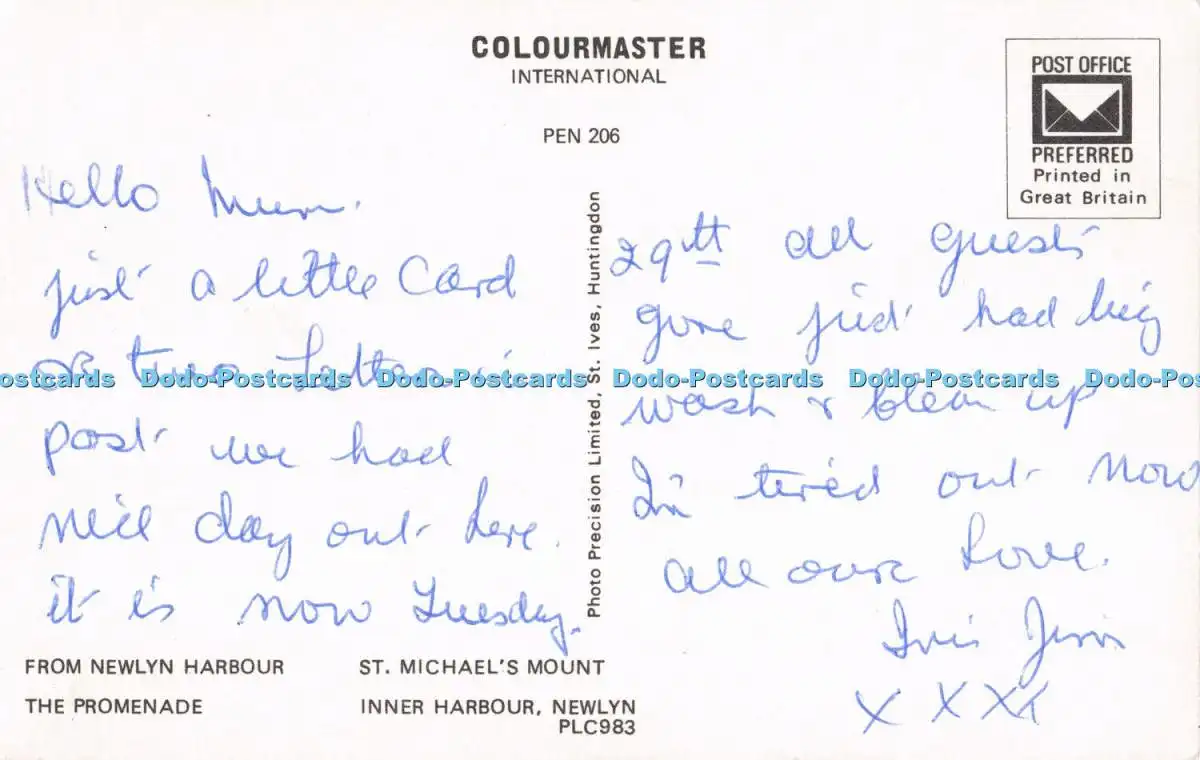 COLOURMASTER
INTERNATIONAL
PEN 206
POST OFFICE
PREFERRED
Printed in
Great Britain
Hello Mum.
just a little Card
or two Letters
post we had
nice day out here.
it is now Tuesday.
Photo Precision Limited, St. Ives, Huntingdon
29th all guests
gone just had big
wash & clean up
Im tired out now
all our Love.
Iris
X X X X
Dodo-Postcards Dodo-Postcards Dodo-Postcards Dodo-Postcards
FROM NEWLYN HARBOUR ST. MICHAEL'S MOUNT
THE PROMENADE INNER HARBOUR, NEWLYN
PLC983